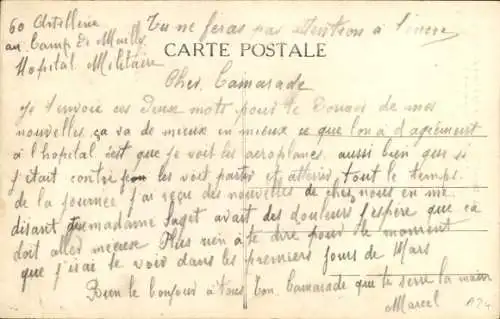 60 Artillerie
au Camp de Mailly
Hopital Militaire
Tu ne feras pas atention a l'encre
CARTE POSTALE
Cher Camarade
Je t'envoie ces deux mots pour te donner de mes
nouvelles ça va de mieux en mieux ce que lon a d'agrément
a l'hopital c'est que je voit les aeroplanes aussi bien que si
j'etait contre les voit partir et atterir tout le temps
de la journée J'ai reçu des nouvelles de chez nous en me
disant que madame Saget avait des douleurs j'espère que ca
doit aller mieuse Plus rien à te dire pour le moment
que j'irai te voir dans les premiers jours de Mars
Bien le bonjour a tous Ton Camarade que te serre la main
Marcel